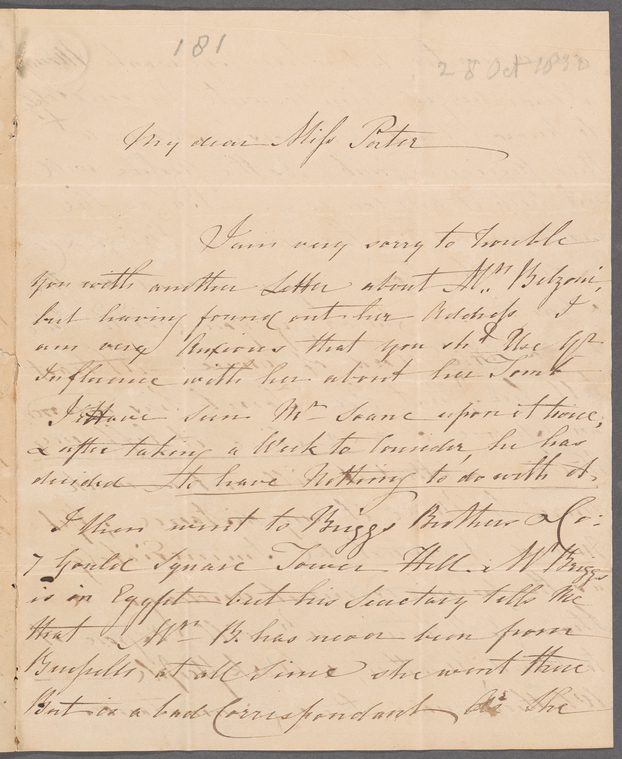 181
28 Oct 1830
My dear Miss Porter
I am very sorry to trouble
you with another Letter about Mrs. Belzoni,
but having found out her Address I
am very Anxious that you shd Use yr
Influence with her about her Tomb
I Have seen Mr Soane upon it twice,
& after taking a Week to Consider, he has
decided to have Nothing to do with it.
I then went to Briggs Brothers & Co:
7 Gould Square Tower Hill. Mr Briggs
is in Egypt but his Secretary tells Me
that Mrs B. has never been from
Brussells, at all Since she went there
But is a bad Correspondant As She